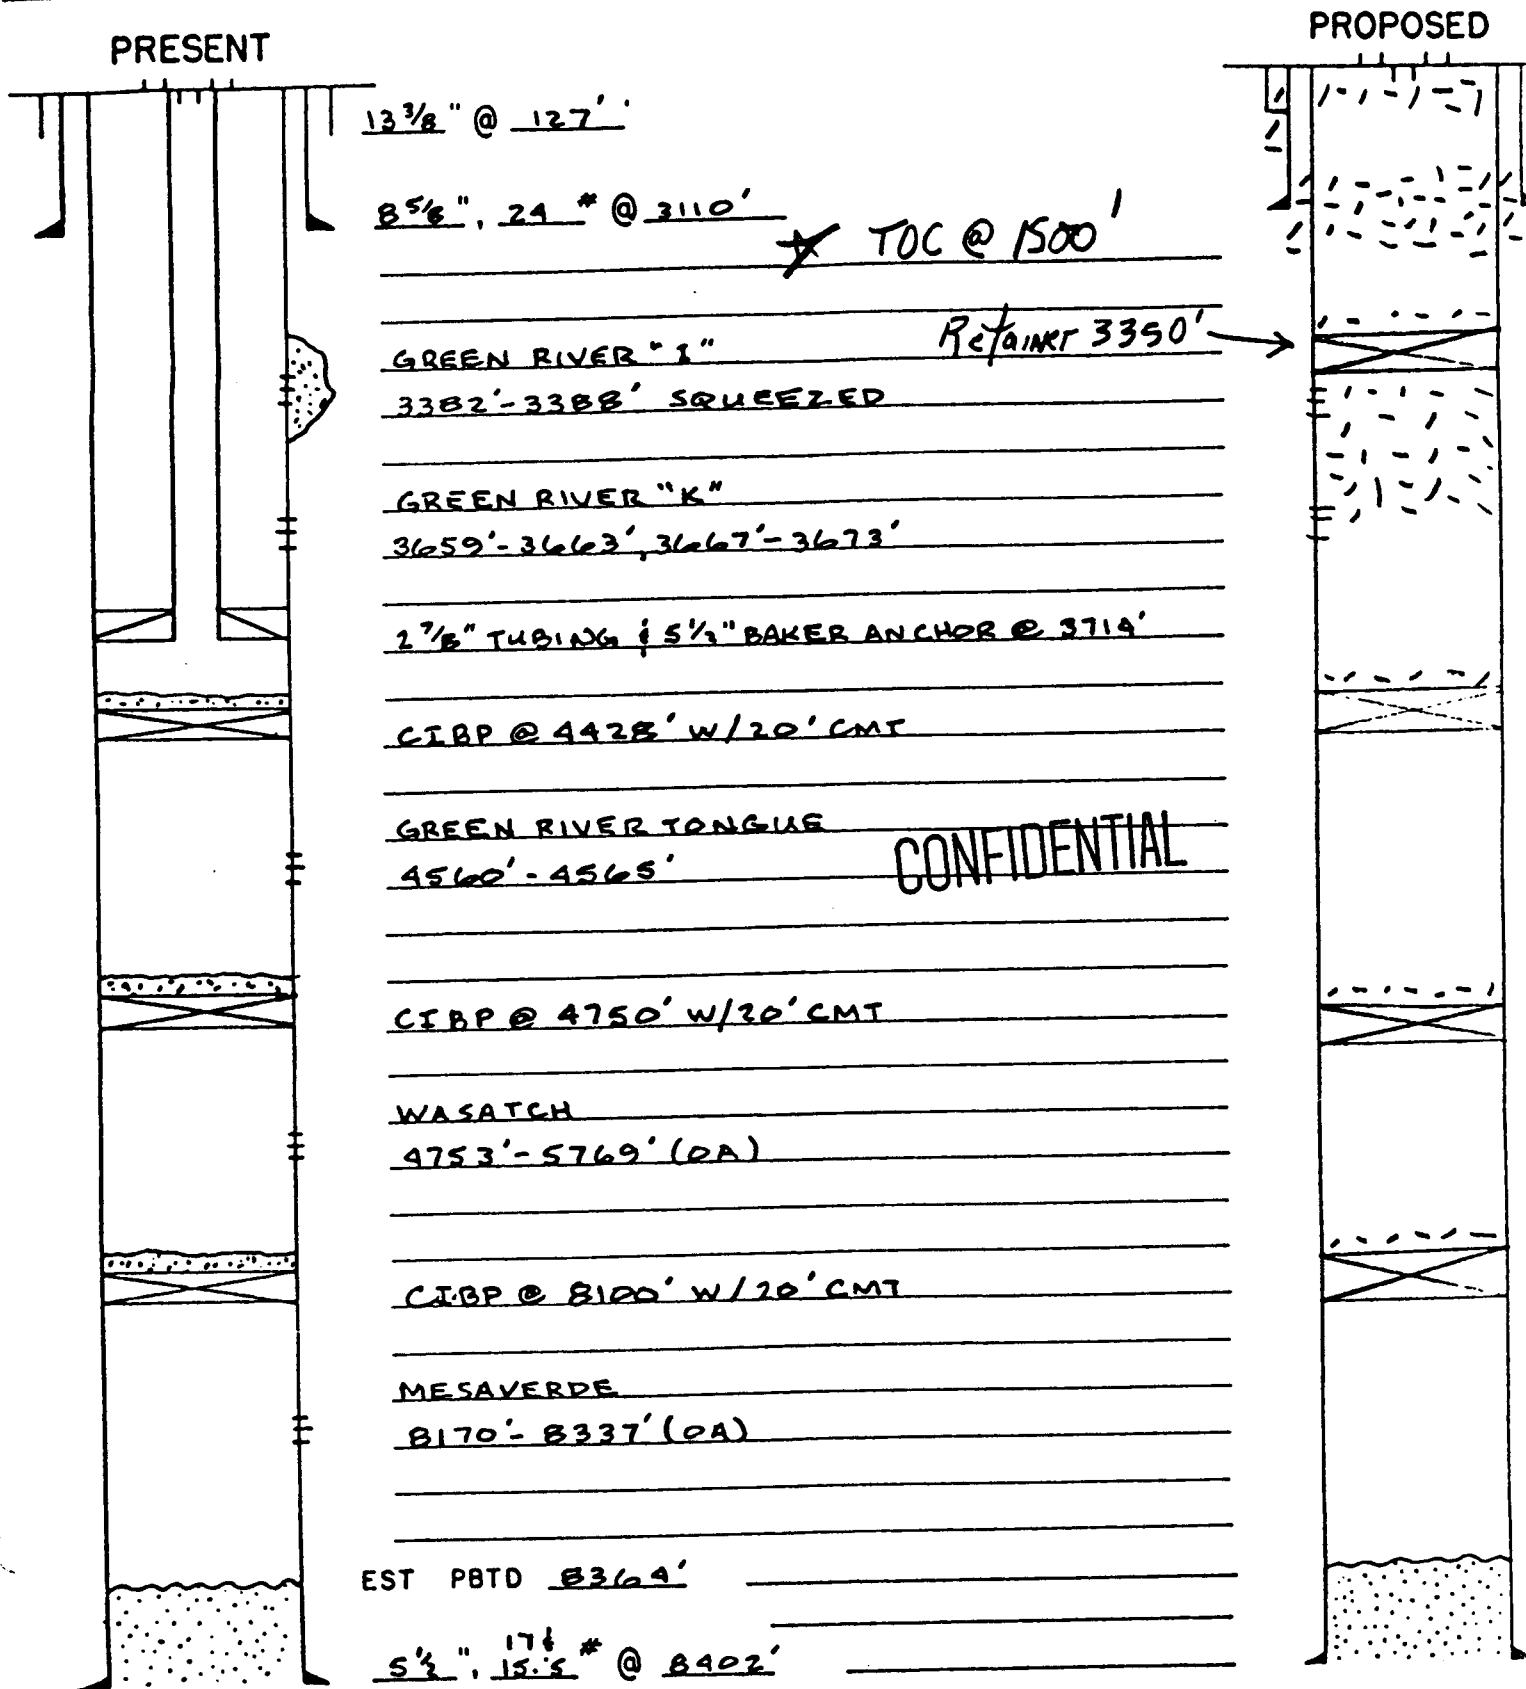 PRESENT
PROPOSED
13 3/8" @ 127'
8 5/8", 24 # @ 3110'
TOC @ 1500'
GREEN RIVER "I"
Retainer 3350'
3382'-3388' SQUEEZED
GREEN RIVER "K"
3659'-3663', 3667'-3673'
2 7/8" TUBING & 5 1/2" BAKER ANCHOR @ 3714'
CIBP @ 4428' W/20' CMT
GREEN RIVER TONGUE
CONFIDENTIAL
4560'-4565'
CIBP @ 4750' W/20' CMT
WASATCH
4753'-5769' (OA)
CIBP @ 8100' W/20' CMT
MESAVERDE
8170'-8337' (OA)
EST PBTD 8364'
5 1/2", 17 & 15.5 # @ 8402'